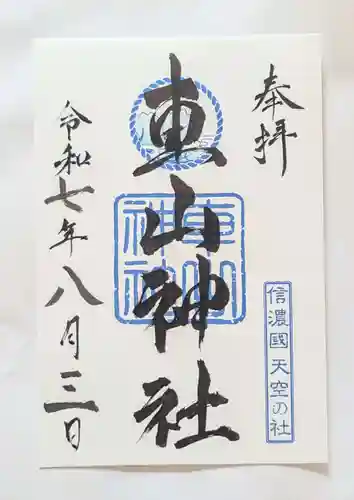 奉拝
車山神社
車山神社
信濃國 天空の社
令和七年八月三日